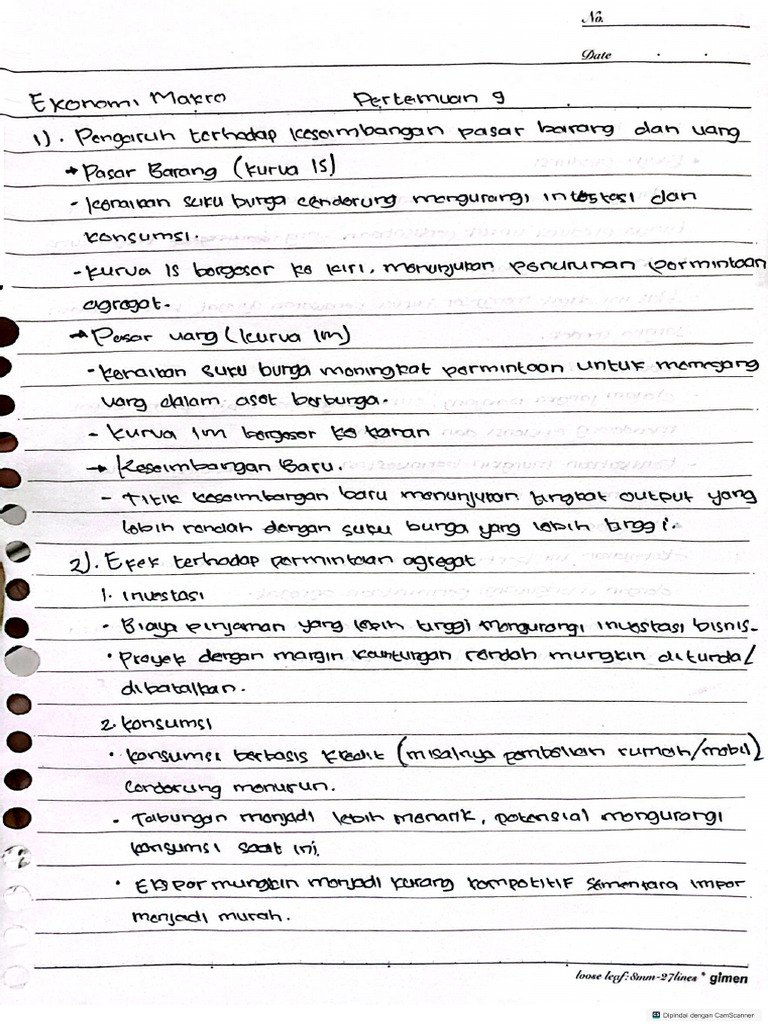 No.
Date . .
Ekonomi Makro Pertemuan 9
1). Pengaruh terhadap keseimbangan pasar barang dan uang
→ Pasar Barang (kurva IS)
- kenaikan suku bunga cenderung mengurangi intestasi dan
konsumsi.
- kurva IS bergeser ke kiri, menunjukan penurunan permintaan
agregat.
→ Pasar uang (kurva lm)
- kenaikan suku bunga meningkat permintaan untuk memegang
uang dalam aset berbunga.
- kurva lm bergeser ke kanan
→ Keseimbangan Baru.
- Titik keseimbangan baru menunjukan tingkat output yang
lebih rendah dengan suku bunga yang lebih tinggi.
2). Efek terhadap permintaan agregat
1. investasi
- Biaya pinjaman yang lebih tinggi mengurangi investasi bisnis.
• Proyek dengan margin keuntungan rendah mungkin ditunda/
dibatalkan.
2. konsumsi
• konsumsi berbasis kredit (misalnya pembelian rumah/mobil)
cenderung menurun.
• Tabungan menjadi lebih menarik, potensial mengurangi
konsumsi saat ini.
• Ekspor mungkin menjadi kurang kompetitif sementara impor
menjadi murah.
loose leaf: 8mm-27lines * glmen
Dipindai dengan CamScanner